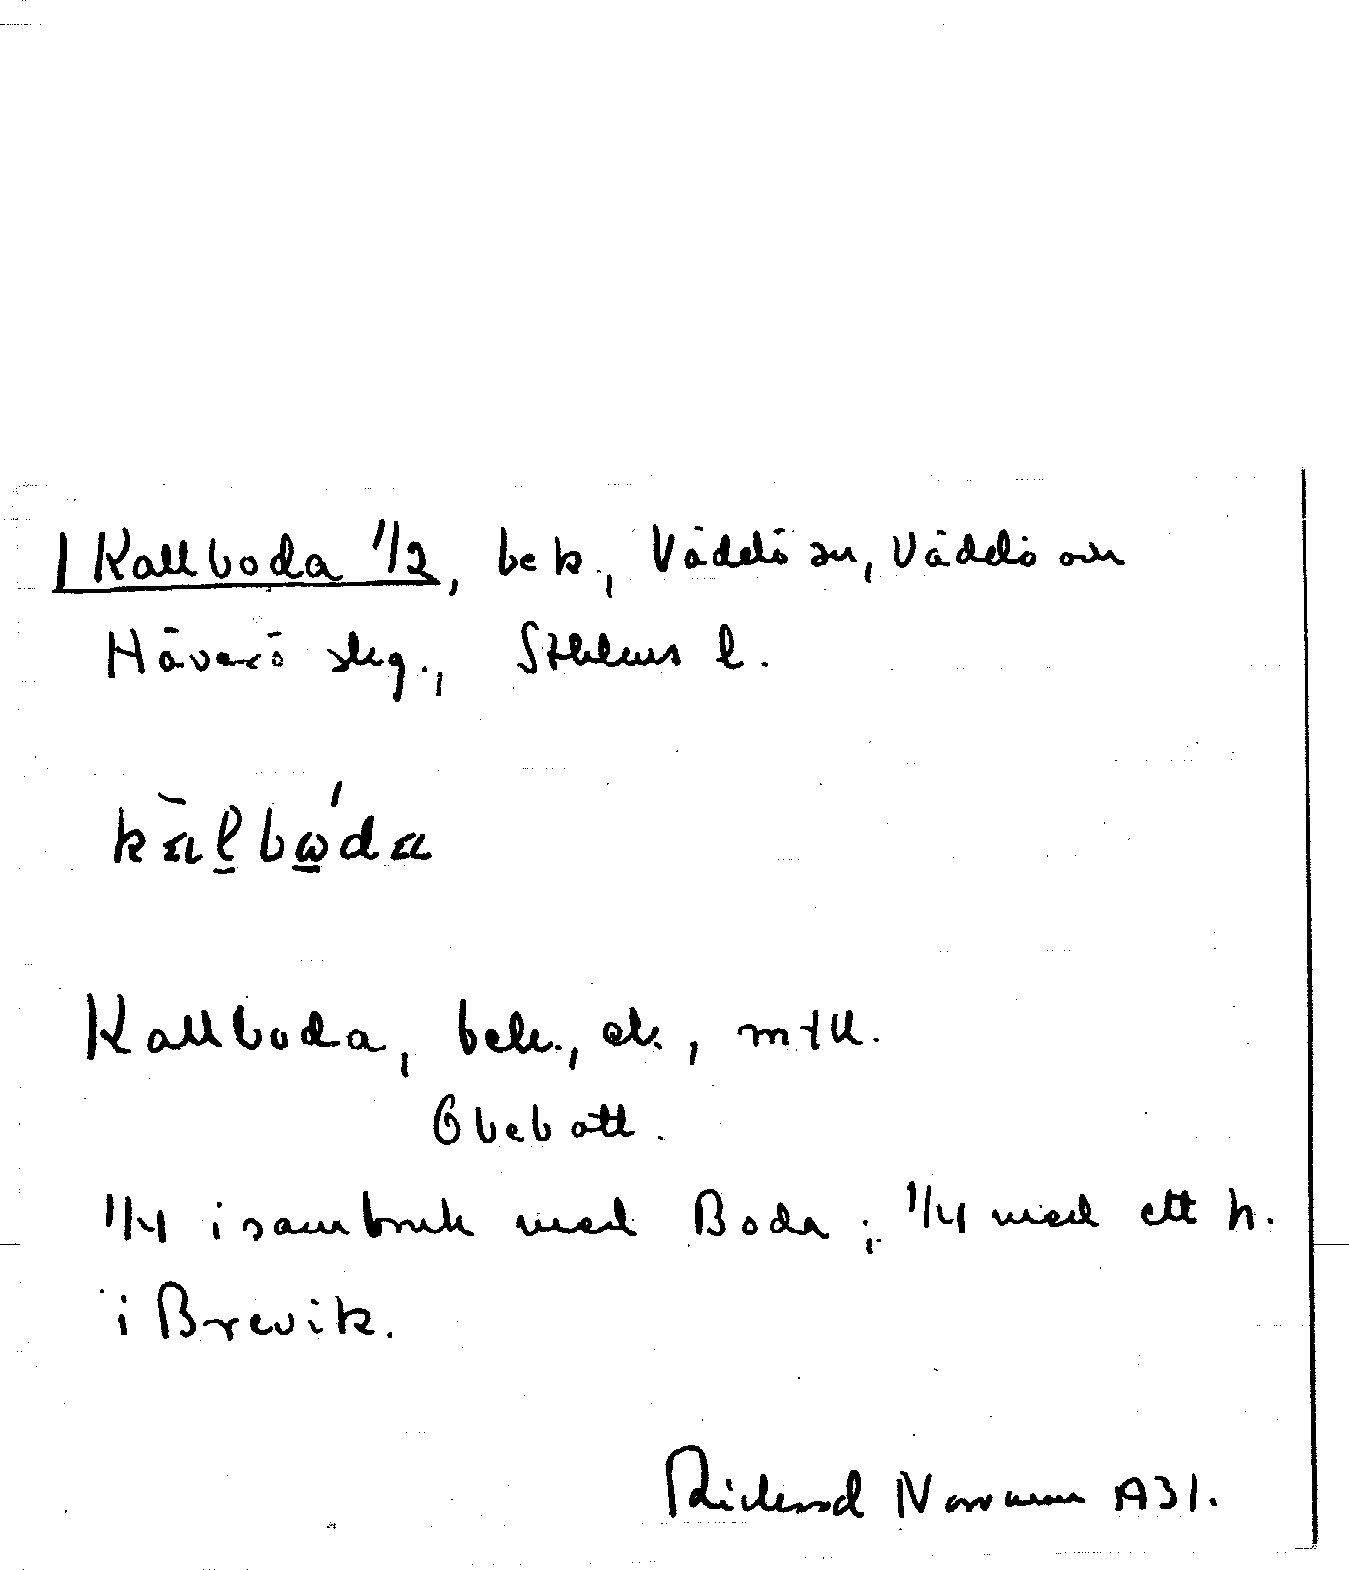 Kallboda 1/2, bek., Väddö sn, Väddö och
Häverö skg., Sthlms l.
kàlbωda
Kallboda, bek., ek., mtll.
Obebott.
1/4 i sambruk med Boda; 1/4 med ett h.
i Brevik.
Richard Norrman A31.